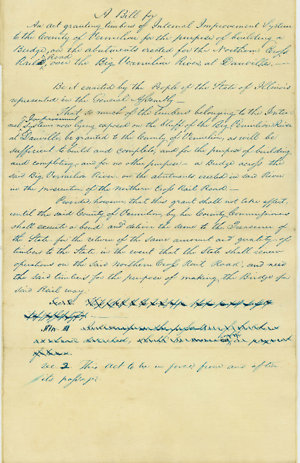 A Bill for
An act granting timbers of Internal Improvement System
to the County of Vermilion for the purpose of building a
Bridge, on the abutments erected for the Northern Cross
Rail Road, over the Big Vermilion River at Danville. —
Be it enacted by the People of the State of Illinois
represented in the General Assembly —
That so much of the timbers belonging to the Inter-
Improvement
System now lying exposed on the Bluff of the Big Vermilion River
at Danville, be granted to the County of Vermilion, as will be
sufficient to build and complete, and for the purpose of building
and completing, and for no other purpose — a Bridge across the
said Big Vermilion River on the abutments erected in said River
in the prosecution of the northern Cross Rail Road —
Provided however that this grant shall not take effect,
until the said County of Vermilion, by her County Commissioners
shall execute a bond and deliver the same to the Treasurer of
the State for the return of the same amount and quality of
timbers to the State in the event that the State shall renew
operations on the said Northern Cross Rail Road, and need
the said timbers for the purpose of making, the Bridge for
said Rail way.
Sec 2 This Act to be in force from and after
its passage.